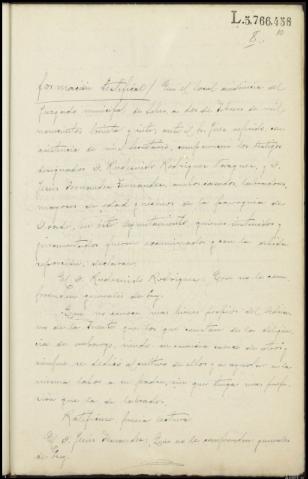 L.5.766.456
8.
formación testifical / En el local audiencia del
Juzgado municipal de a dos de Febrero de mil
novecientos treinta y cinco, ante el Sr. Juez referido, con
asistencia de mi el Secretario, comparecieron los testigos
designados D. Rudesindo Rodríguez y D.
Jesús Fernández Fernández, casados, labradores,
mayores de edad y vecinos de la parroquia de
en este Ayuntamiento, quienes instruidos y
juramentados fueron examinados y con la debida
separación, declaran:
El D. Rudesindo Rodríguez: Que no le com-
prenden generales de Ley.
Que no conoce más bienes propios del
de la que los que constan de la diligen-
cia de embargo, siendo
siempre se dedicó al cultivo de ellos y a ayudar a la
misma labor a su padre, sin que tenga más profe-
sión que la de labrador.
Ratifícase, previa lectura.
El D. Jesús Fernández: Que no le comprenden generales
de Ley.